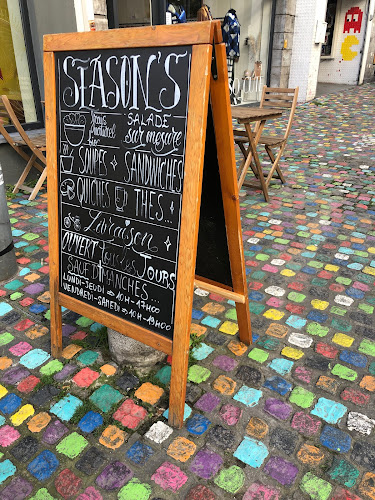 SEASON'S
SALADE
sur mesure
SOUPES + SANDWICHES
QUICHES THÉS..
Livraison
OUVERT Tous les Jours
SAUF DIMANCHES...
LUNDI-JEUDI 10H-17H00
VENDREDI-SAMEDI 10H-19H00